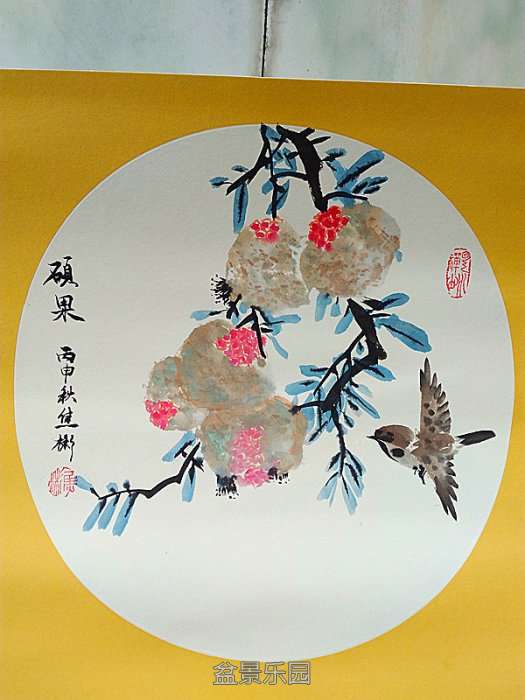 硕果
丙申秋焦彬
盆景乐园